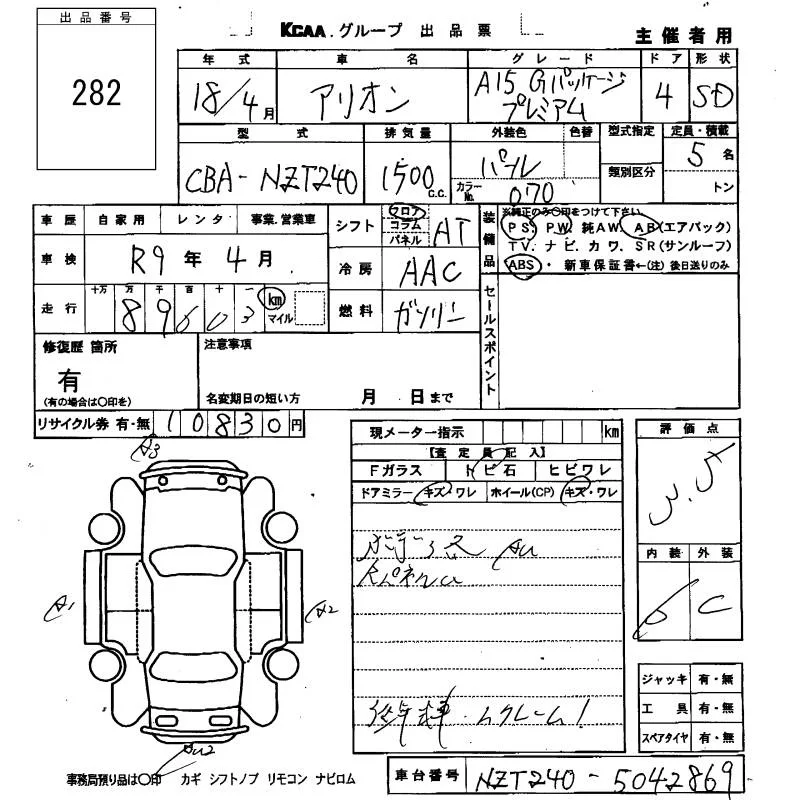 出品番号
282
KCAA.グループ 出品票
主催者用
年式 車名 グレード ドア 形状
18/4月 アリオン A15 Gパッケージ プレミアム 4 SD
型式 排気量 外装色 色替 型式指定 定員・積載
CBA-NZT240 1500 C.C. パール 5名
カラーNo. 070 類別区分 トン
車歴 自家用 レンタ 事業.営業車
車検 R9年4月
走行 十万 万 千 百 十 一
89603 km マイル
シフト フロア コラム パネル AT
冷房 AAC
燃料 ガソリン
装備品
※純正のみ〇印をつけて下さい
PS. PW. 純AW. AB(エアバック)
TV. ナビ. カワ. SR(サンルーフ)
ABS・新車保証書←(注)後日送りのみ
セールスポイント
修復歴 箇所
有
(有の場合は〇印を)
注意事項
名変期日の短い方 月 日まで
リサイクル券 有・無 10830円
現メーター指示 km
【査定員記入】
Fガラス トビ石 ヒビワレ
ドアミラー キズ・ワレ ホイール(CP) キズ・ワレ
AU
後年車.ムクレーム!
評価点
3.5
内装 外装
C
ジャッキ 有・無
工具 有・無
スペアタイヤ 有・無
A3
A1
A2
AU2
事務局預り品は〇印 カギ シフトノブ リモコン ナビロム
車台番号 NZT240-5042869